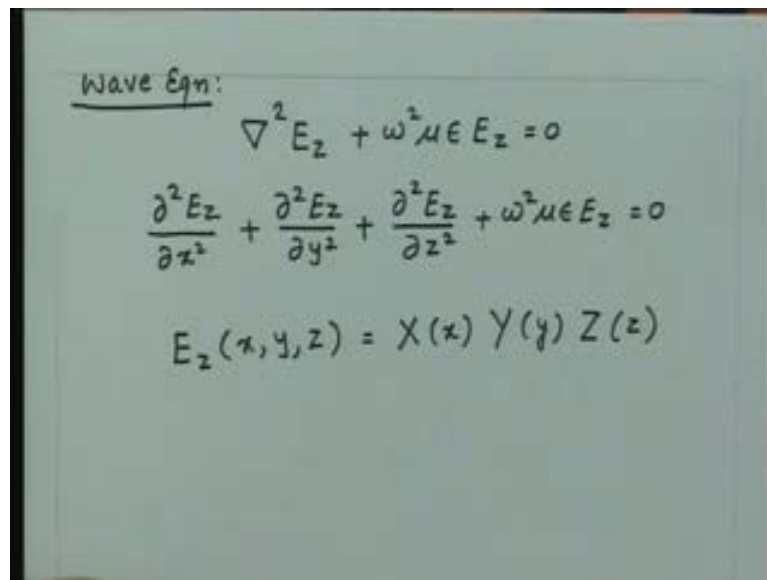 Wave Eqn:
∇²E_z + ω²μϵ E_z = 0
∂²E_z/∂x² + ∂²E_z/∂y² + ∂²E_z/∂z² + ω²μϵ E_z = 0
E_z(x,y,z) = X(x) Y(y) Z(z)